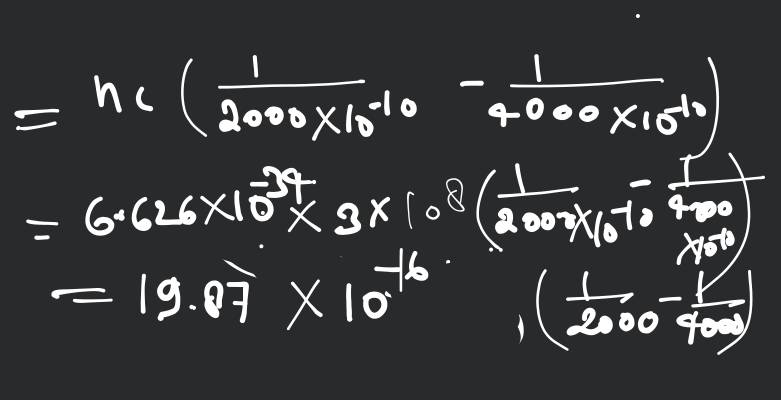 = hc ( 1/2000×10^-10 - 1/4000×10^-10 )
= 6.626×10^-34 × 3×10^8 ( 1/2000×10^-10 - 1/4000×10^-10 )
= 19.87 × 10^-16 ( 1/2000 - 1/4000 )